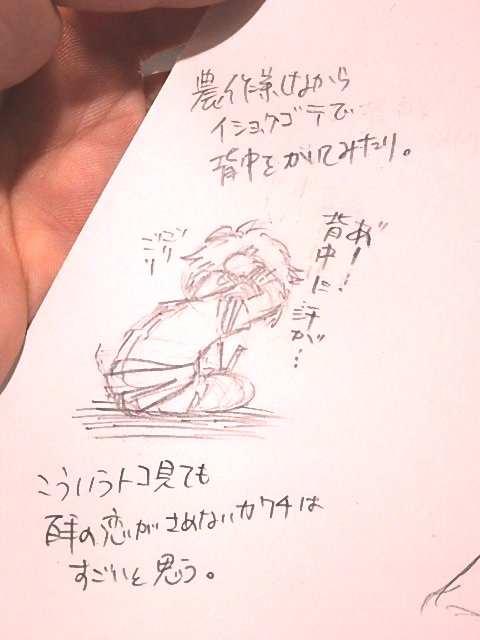 農作業しながら
イショクゴテで
背中をかいてみたり。
ゴリ
ゴリ
あ"ー!!
背中に汗が…
こういうトコ見ても
百年の恋がさめないカワチは
すごいと思う。